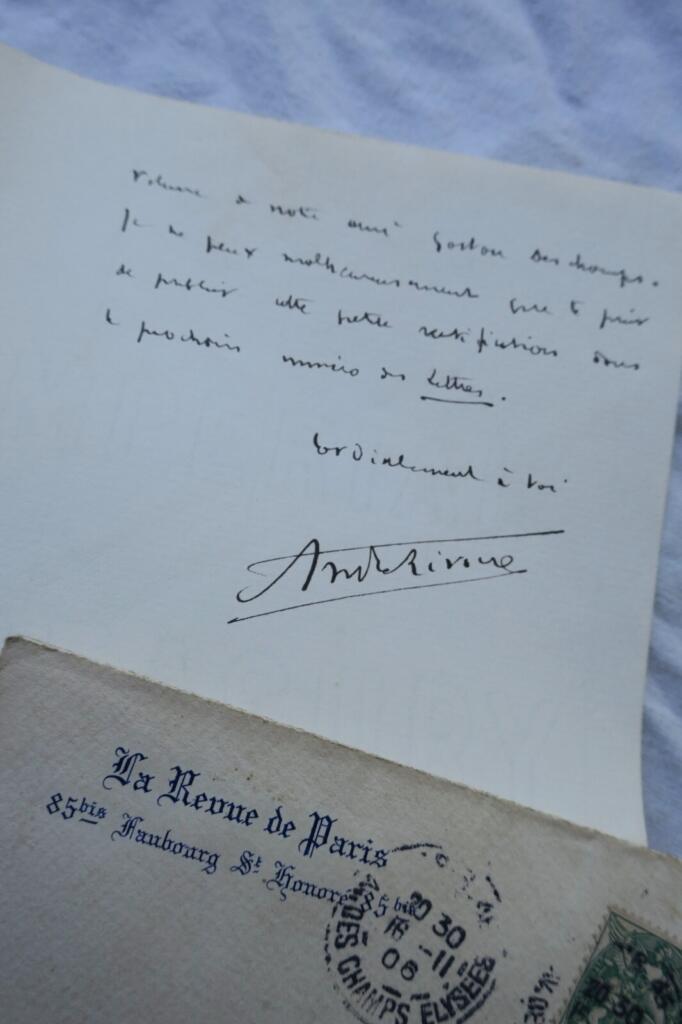 volume de notre ami Gaston Deschamps.
Je ne peux malheureusement que te prier
de publier cette petite rectification dans
le prochain numéro des Lettres.
Cordialement à toi
André Rivoire
La Revue de Paris
85bis Faubourg St Honoré 85bis
20 30
16 -11
06
AV. DES CHAMPS ELYSEES